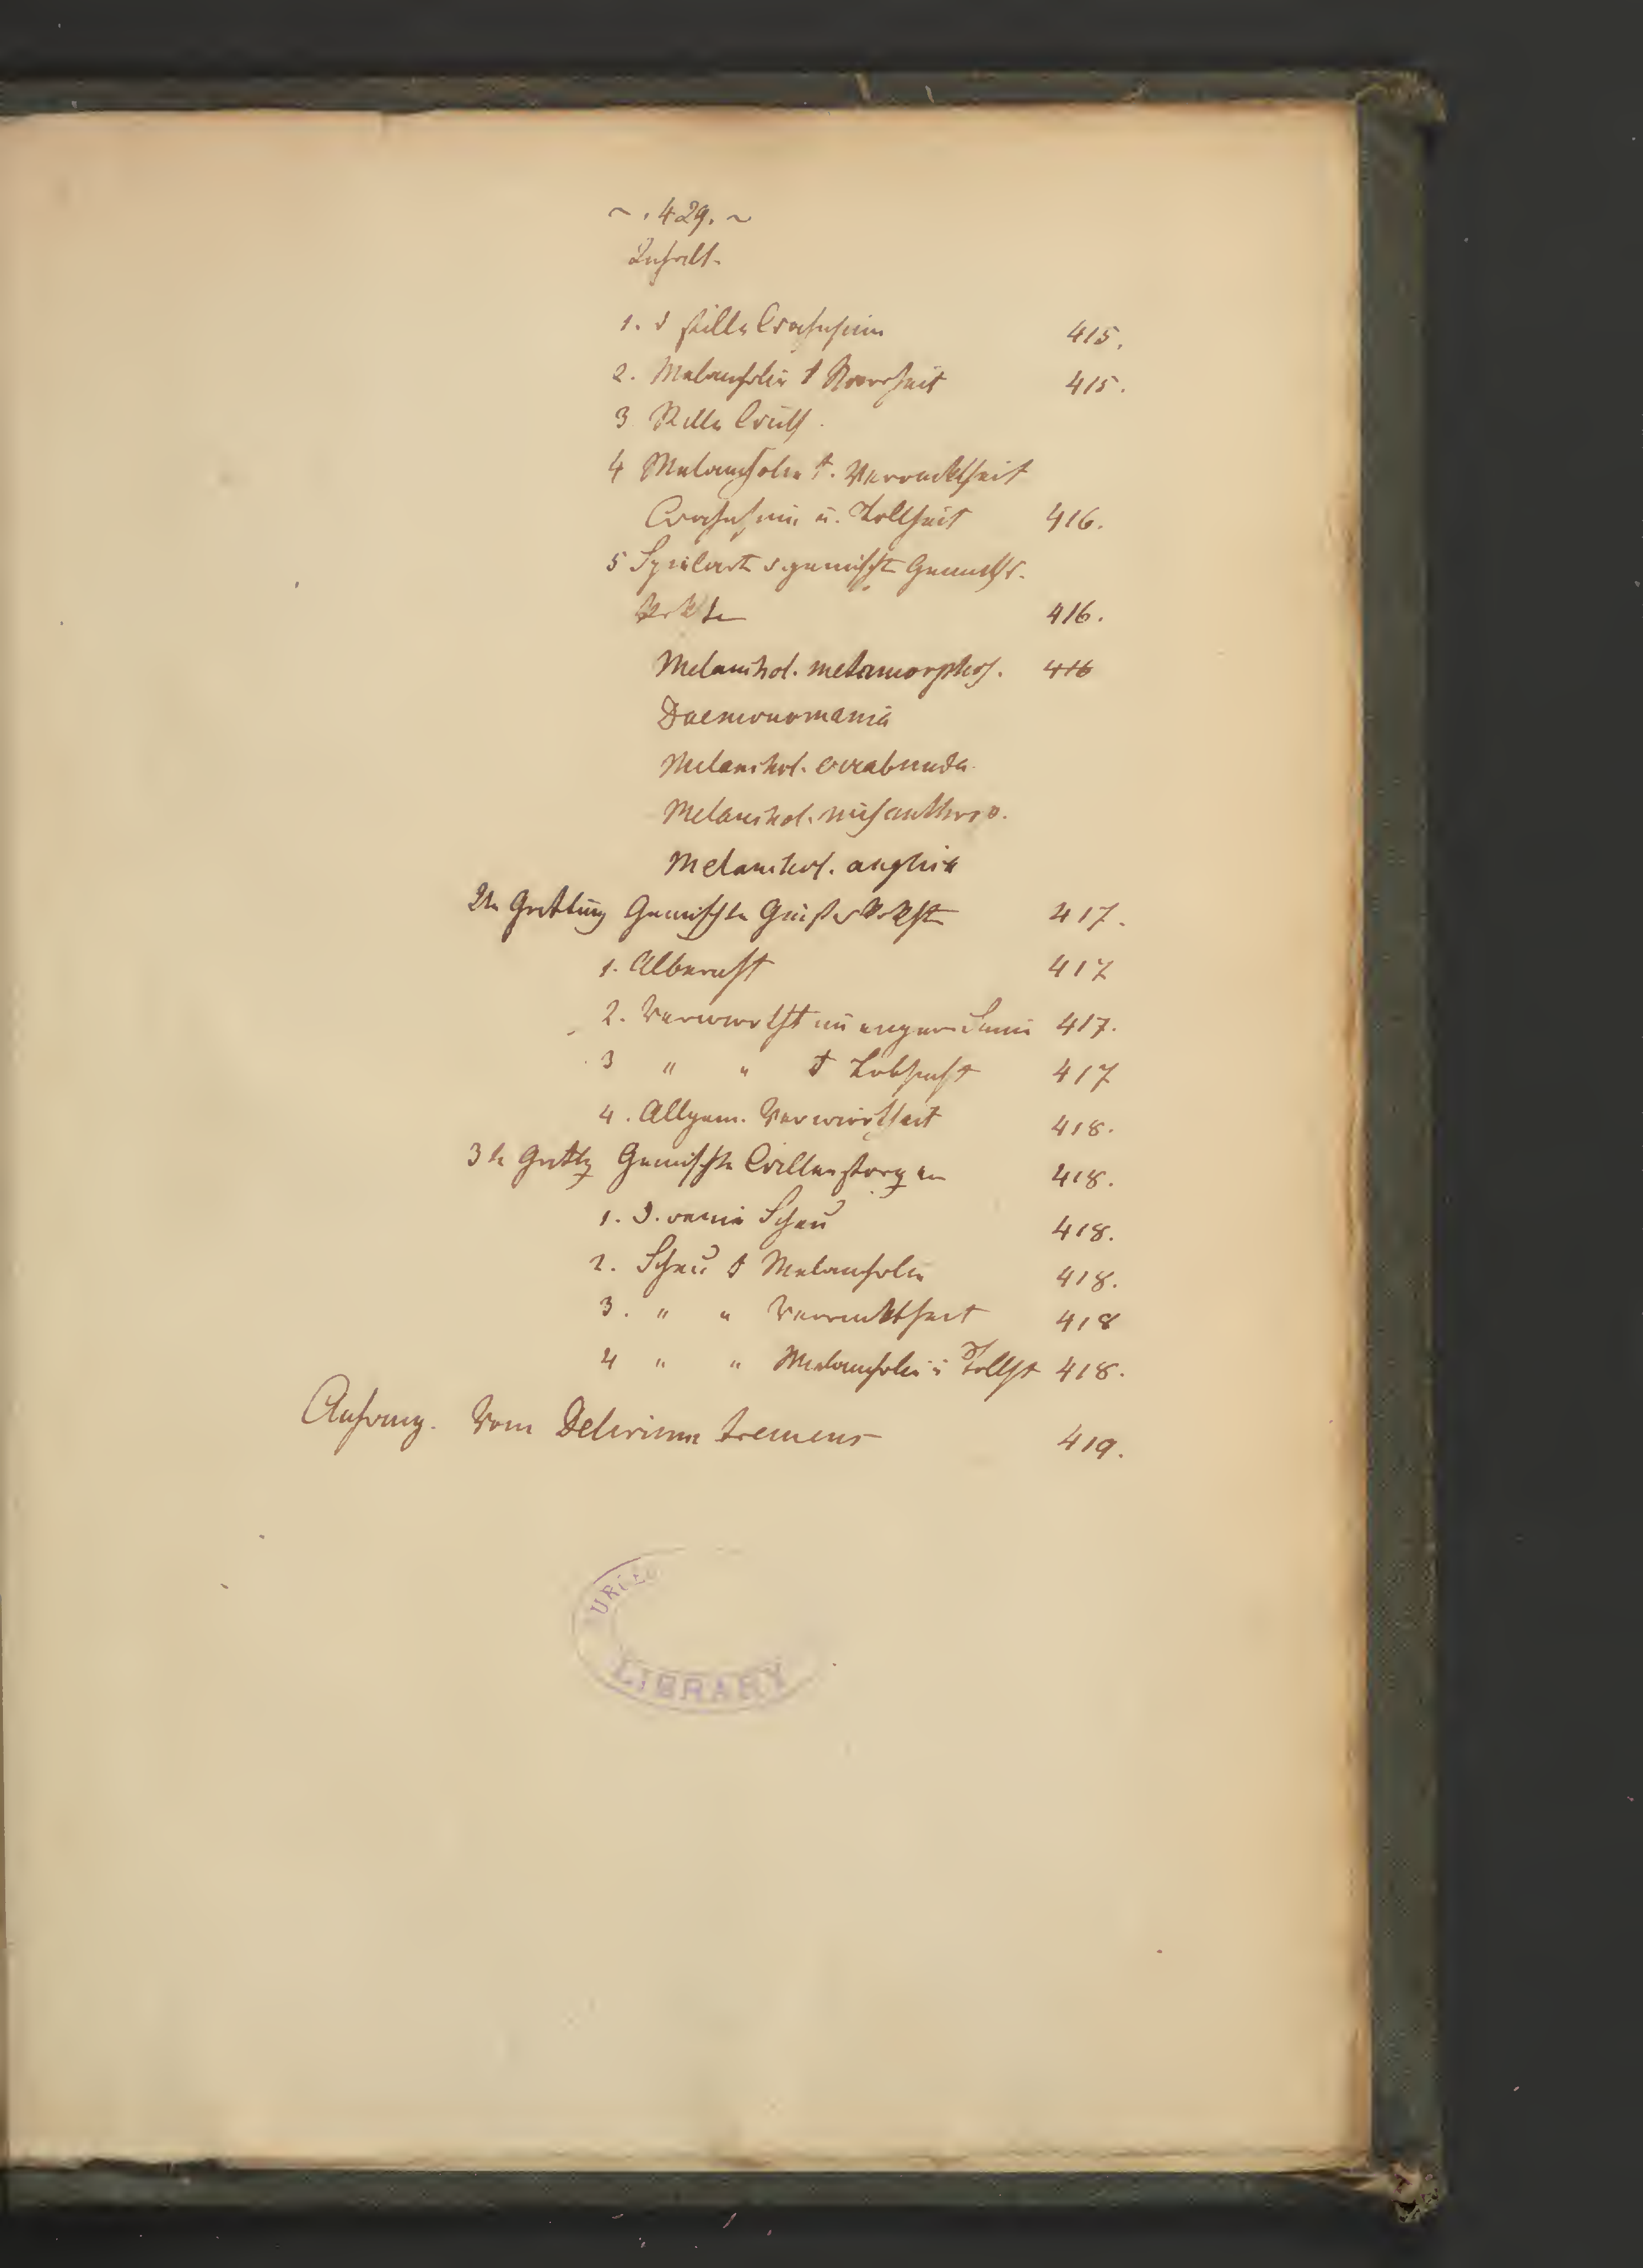 ~ . 429. ~
Inhalt.
1. d stille Wahnsinn 415.
2. Melancholie Narrheit 415.
3 Stille Wuth.
4 Melancholie Verrücktheit
Wahnsinn u. Tollheit 416.
5 Spielart d. gemischt Gemüths-
416.
Melanchol. metamorphos. 416
Daemonomania
Melanchol. errabunda
Melanchol. misanthrop.
Melanchol. anglica
2te Gattung Gemischte 417.
1. Albernht 417
2. Verwirrtht im engern Sinn 417.
3 " " Tobsucht 417
4. Allgem. Verwirrtheit 418.
3te Gattg Gemischte Willensstorgen 418.
1. D. reine Scheu 418.
2. Scheu Melancholie 418.
3. " " Verrücktheit 418
4 " " Melancholie u Tollht 418.
Anhang. Vom Delirium tremens 419.
LIBRARY